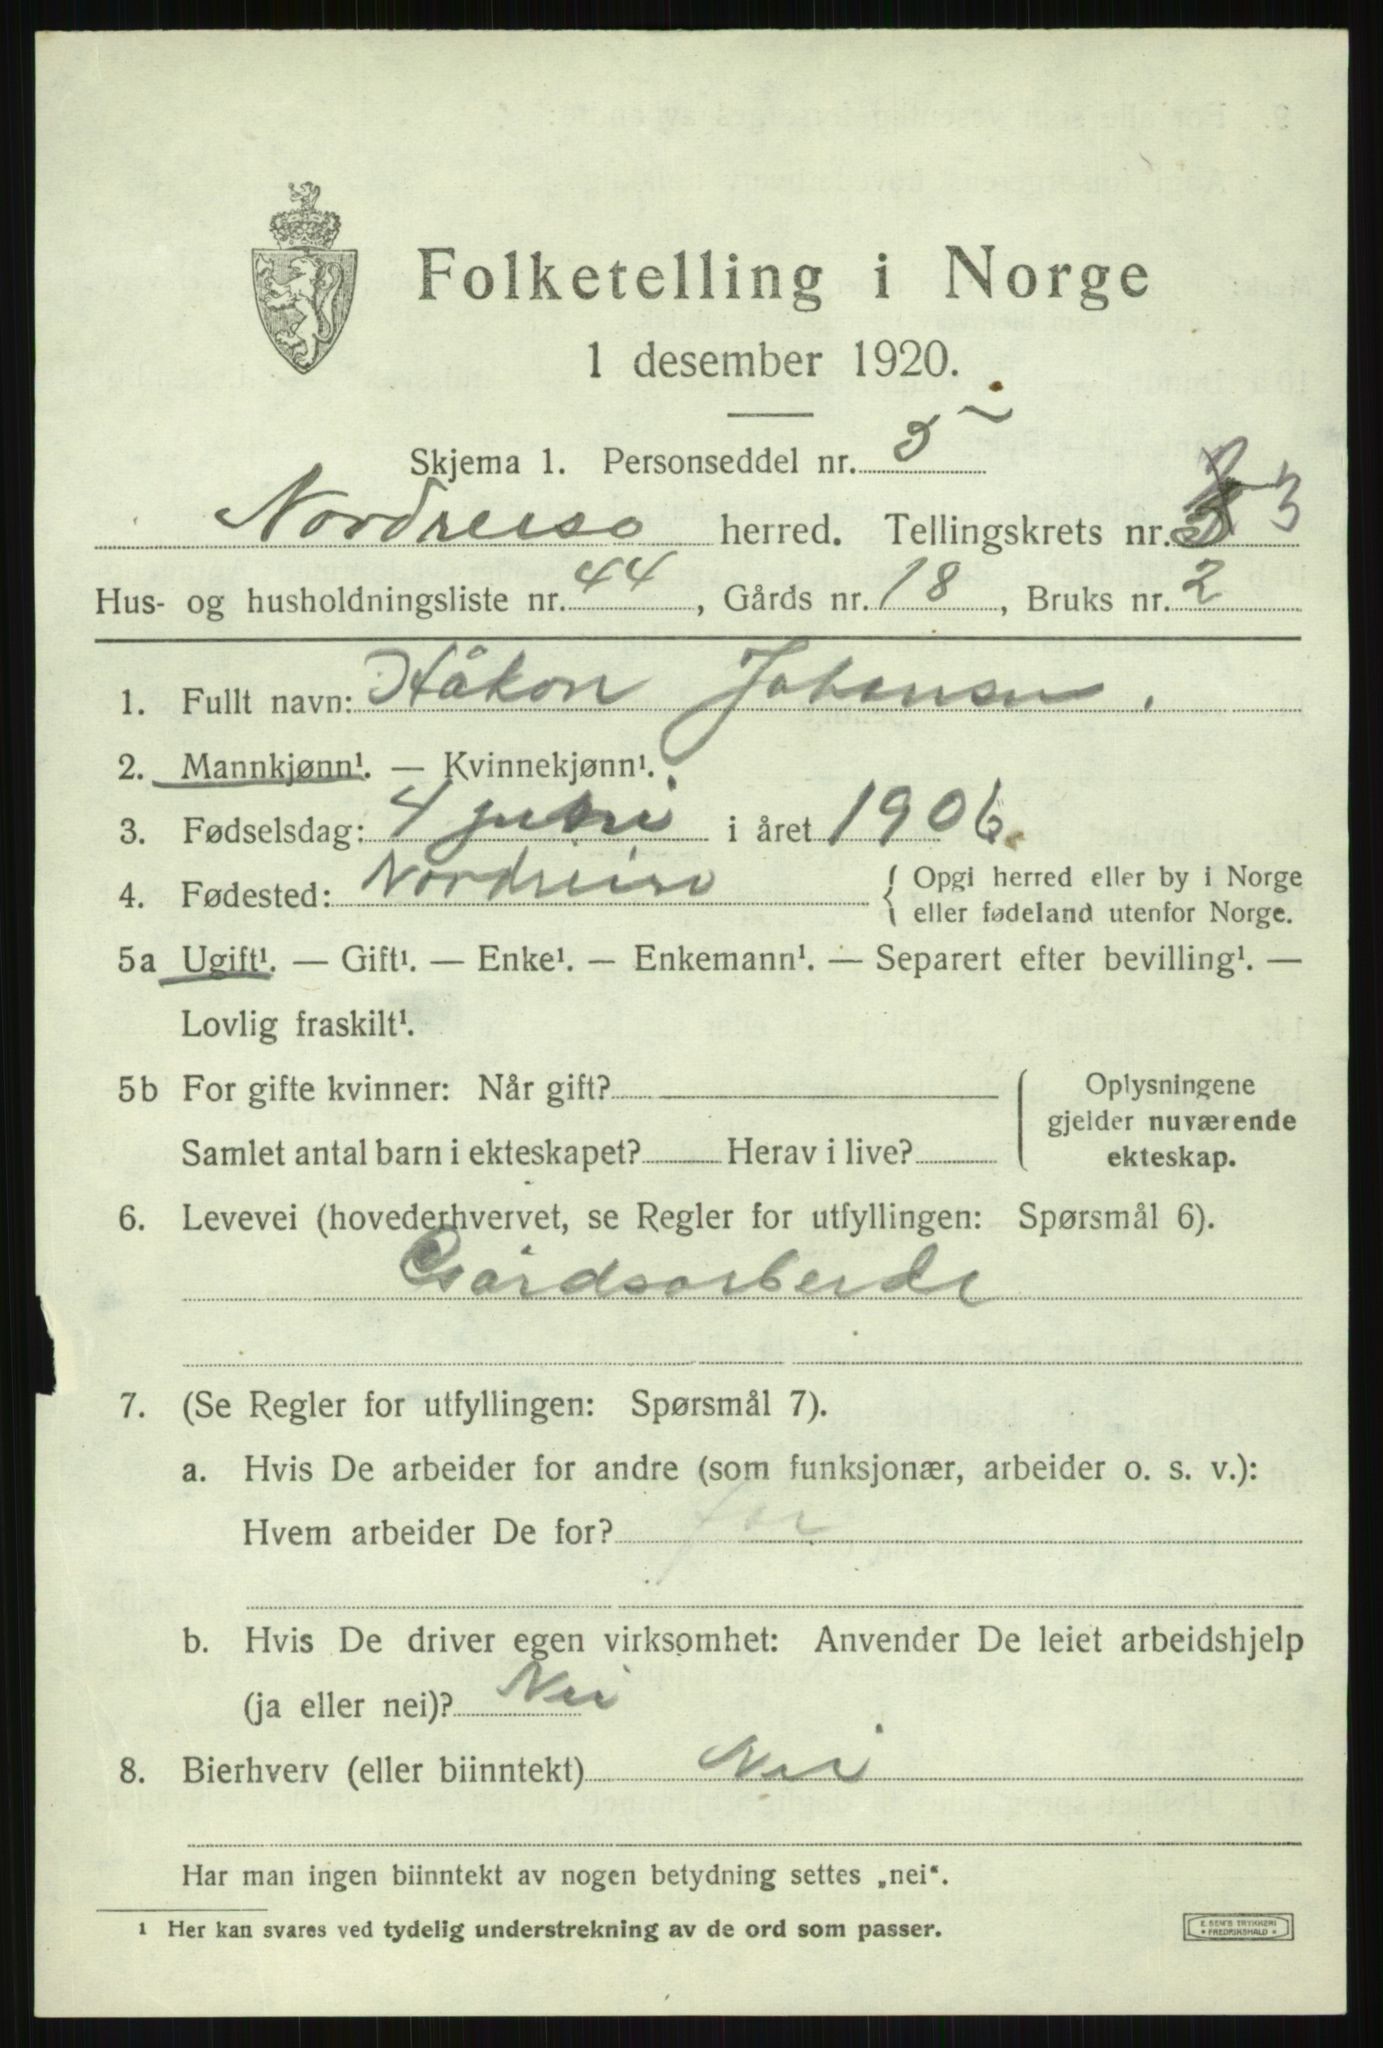 Folketelling i Norge
1 desember 1920.
Skjema 1. Personseddel nr. 5
Nordreisa herred. Tellingskrets nr. 3
Hus- og husholdningsliste nr. 44, Gårds nr. 18, Bruks nr. 2
1. Fullt navn: Håkon Johansen.
2. Mannkjønn¹. — Kvinnekjønn¹.
3. Fødselsdag: 4 i året 1906.
4. Fødested: Nordreisa { Opgi herred eller by i Norge
eller fødeland utenfor Norge.
5a Ugift¹. — Gift¹. — Enke¹. — Enkemann¹. — Separert efter bevilling¹. —
Lovlig fraskilt¹.
5b For gifte kvinner: Når gift?
Samlet antal barn i ekteskapet? Herav i live?
Oplysningene
gjelder nuværende
ekteskap.
6. Levevei (hovederhvervet, se Regler for utfyllingen: Spørsmål 6).
Gårdsarbeide
7. (Se Regler for utfyllingen: Spørsmål 7).
a. Hvis De arbeider for andre (som funksjonær, arbeider o. s. v.):
Hvem arbeider De for? far
b. Hvis De driver egen virksomhet: Anvender De leiet arbeidshjelp
(ja eller nei)? Nei
8. Bierhverv (eller biinntekt) Nei
Har man ingen biinntekt av nogen betydning settes „nei“.
¹ Her kan svares ved tydelig understrekning av de ord som passer.
E. SEM'S TRYKKERI
FREDRIKSHALD